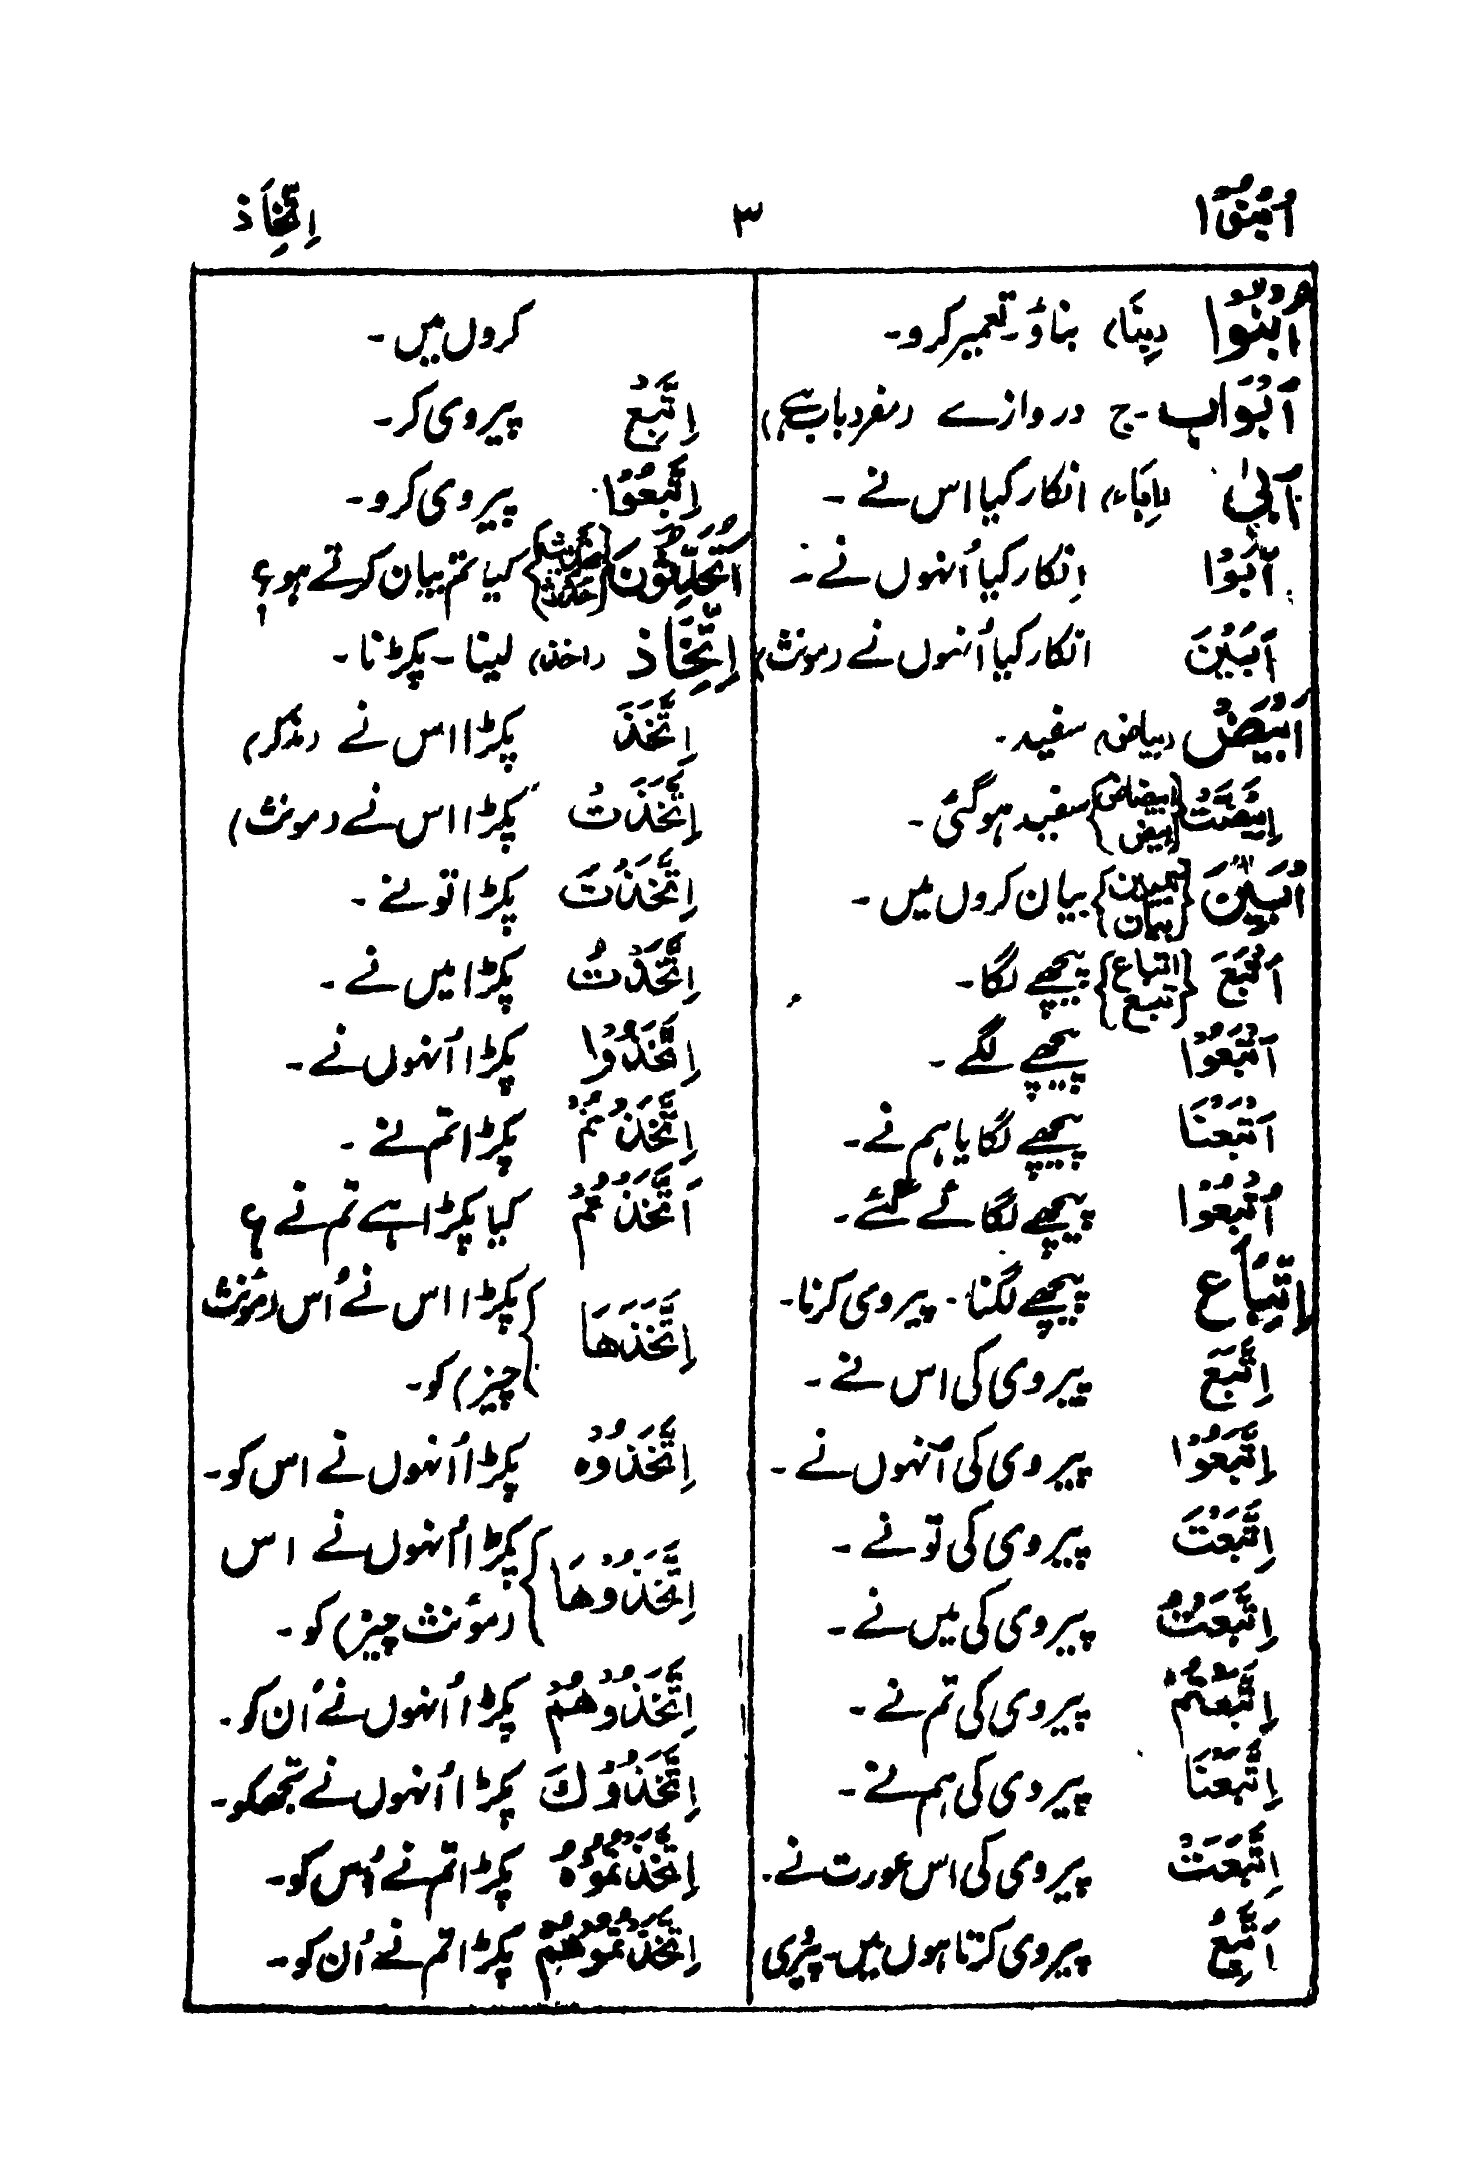 اُبْنُوْا ۳ اِتِّخَاذ
اُبْنُوْا (بِنَا) بناؤ۔ تعمیر کرو۔
اَبْوَاب۔ ج دروازے (مفرد باب ہے)
اَبٰی (اِبَاء) انکار کیا اس نے ۔
اَبَوْا اِنکار کیا اُنہوں نے ۔
اَبَيْنَ انکار کیا اُنہوں نے (مونث)
اَبْيَضُ (بیاض) سفید۔
اِبْيَضَّتْ {ابیضاض ابیض} سفید ہوگئی۔
اُبَيِّنَ {تبیین بیان} بیان کروں میں ۔
اَتْبَعَ {اتباع تبع} پیچھے لگا۔
اَتْبَعُوْا پیچھے لگے ۔
اَتْبَعْنَا پیچھے لگایا ہم نے ۔
اُتْبِعُوْا پیچھے لگائے گئے ۔
اِتِّبَاع پیچھے لگنا۔ پیروی کرنا۔
اِتَّبَعَ پیروی کی اس نے ۔
اِتَّبَعُوْا پیروی کی اُنہوں نے ۔
اِتَّبَعْتَ پیروی کی تو نے ۔
اِتَّبَعْتُ پیروی کی میں نے ۔
اِتَّبَعْتُمْ پیروی کی تم نے ۔
اِتَّبَعْنَا پیروی کی ہم نے ۔
اِتَّبَعَتْ پیروی کی اس عورت نے ۔
اَتَّبِعُ پیروی کرتا ہوں میں۔ پیروی
کروں میں ۔
اِتَّبِعْ پیروی کر ۔
اِتَّبِعُوْا پیروی کرو ۔
اَتُحَدِّثُوْنَ {تحدیث حدث} کیا تم بیان کرتے ہو؟
اِتِّخَاذ (اخذ) لینا ۔ پکڑنا ۔
اِتَّخَذَ پکڑا اس نے (مذکر)
اِتَّخَذَتْ پکڑا اس نے (مونث)
اِتَّخَذْتَ پکڑا تو نے ۔
اِتَّخَذْتُ پکڑا میں نے ۔
اِتَّخَذُوْا پکڑا اُنہوں نے ۔
اِتَّخَذْتُمْ پکڑا تم نے ۔
اَتَّخَذْتُمْ کیا پکڑا ہے تم نے ؟
اِتَّخَذَهَا } پکڑا اس نے اُس (مؤنث
چیز) کو ۔
اِتَّخَذُوْهُ پکڑا اُنہوں نے اس کو ۔
اِتَّخَذُوْهَا } پکڑا اُنہوں نے اس
(مؤنث چیز) کو ۔
اِتَّخَذُوْهُمْ پکڑا اُنہوں نے اُن کو ۔
اِتَّخَذُوْكَ پکڑا اُنہوں نے تجھکو ۔
اِتَّخَذْتُمُوْهُ پکڑا تم نے اُس کو ۔
اِتَّخَذْتُمُوْهُمْ پکڑا تم نے اُن کو ۔